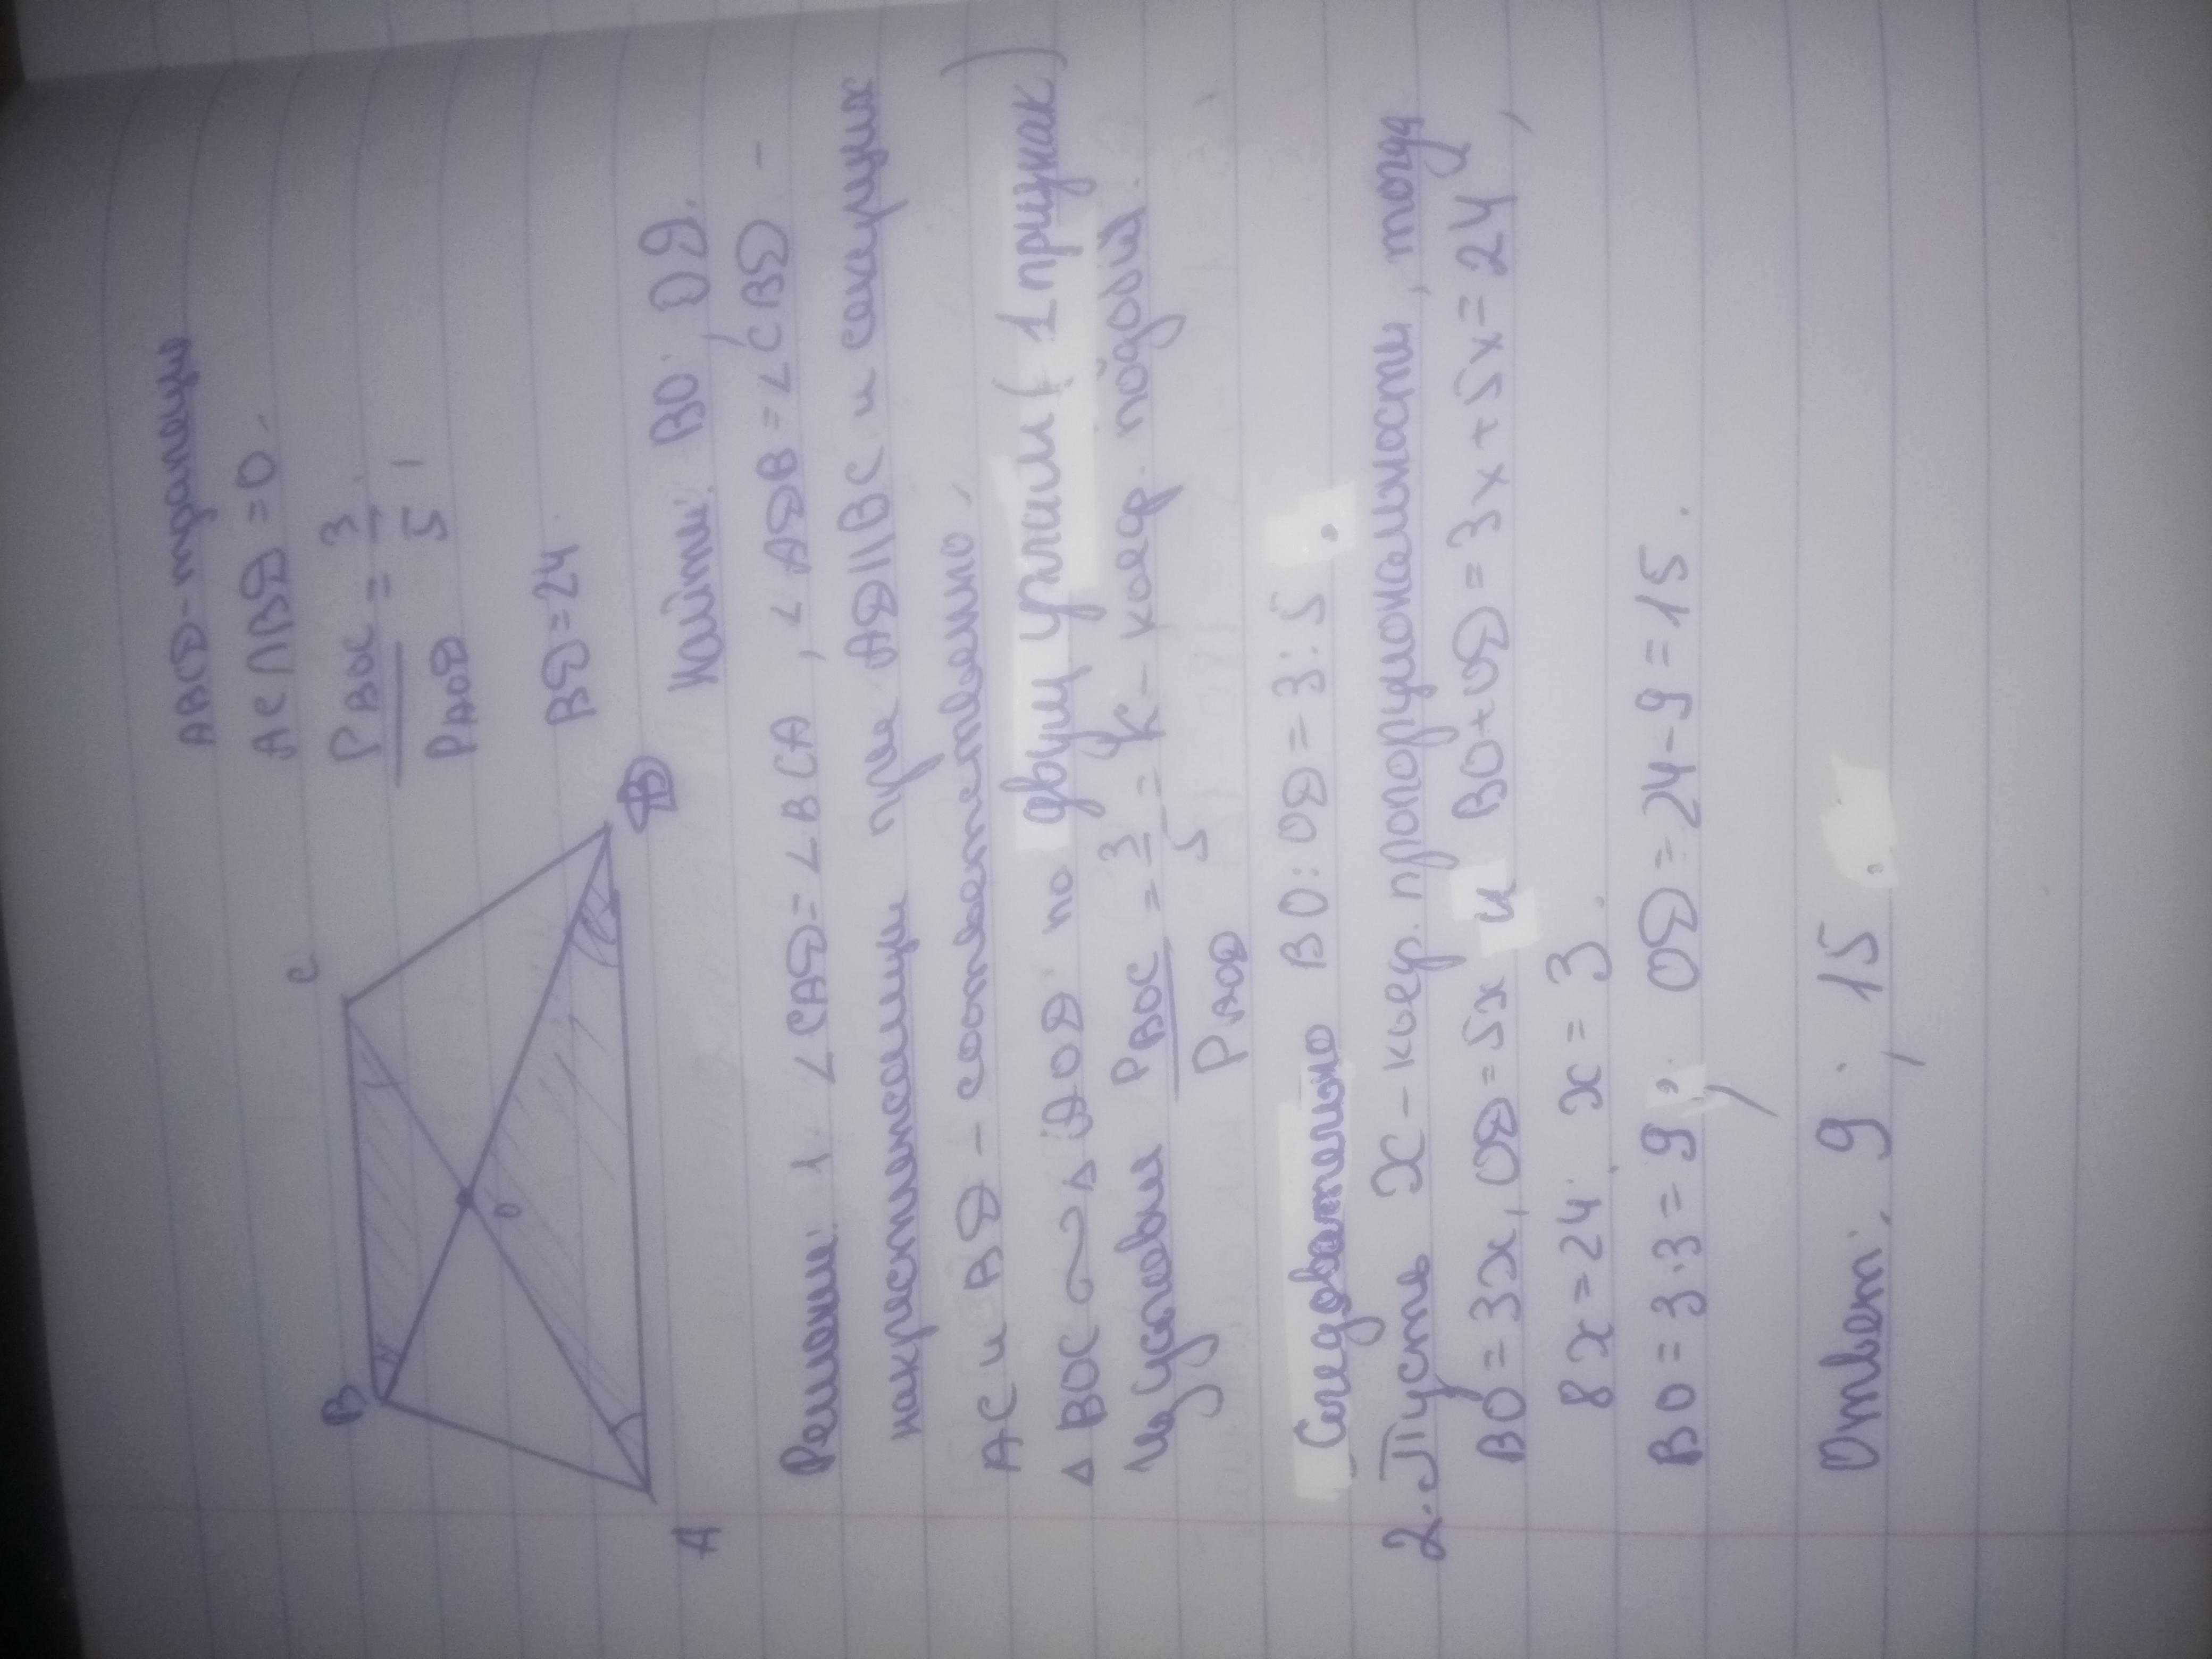 ABCD - трапеция
AC∩BD = O.
P BOC / P AOD = 3/5,
BD = 24
B
C
O
A
D
Найти: BO, OD.
Решение: 1. ∠CAD = ∠BCA, ∠ADB = ∠CBD -
накрестлежащие при AD||BC и секущих
AC и BD - соответственно.
△BOC ∾ △AOD по двум углам (1 признак)
Из условия P BOC / P AOD = 3/5 = k - коэф. подобия.
Следовательно BO : OD = 3 : 5.
2. Пусть x - коэф. пропорциональности, тогда
BO = 3x, OD = 5x и BO + OD = 3x + 5x = 24,
8x = 24; x = 3.
BO = 3·3 = 9; OD = 24 - 9 = 15.
Ответ: 9; 15.